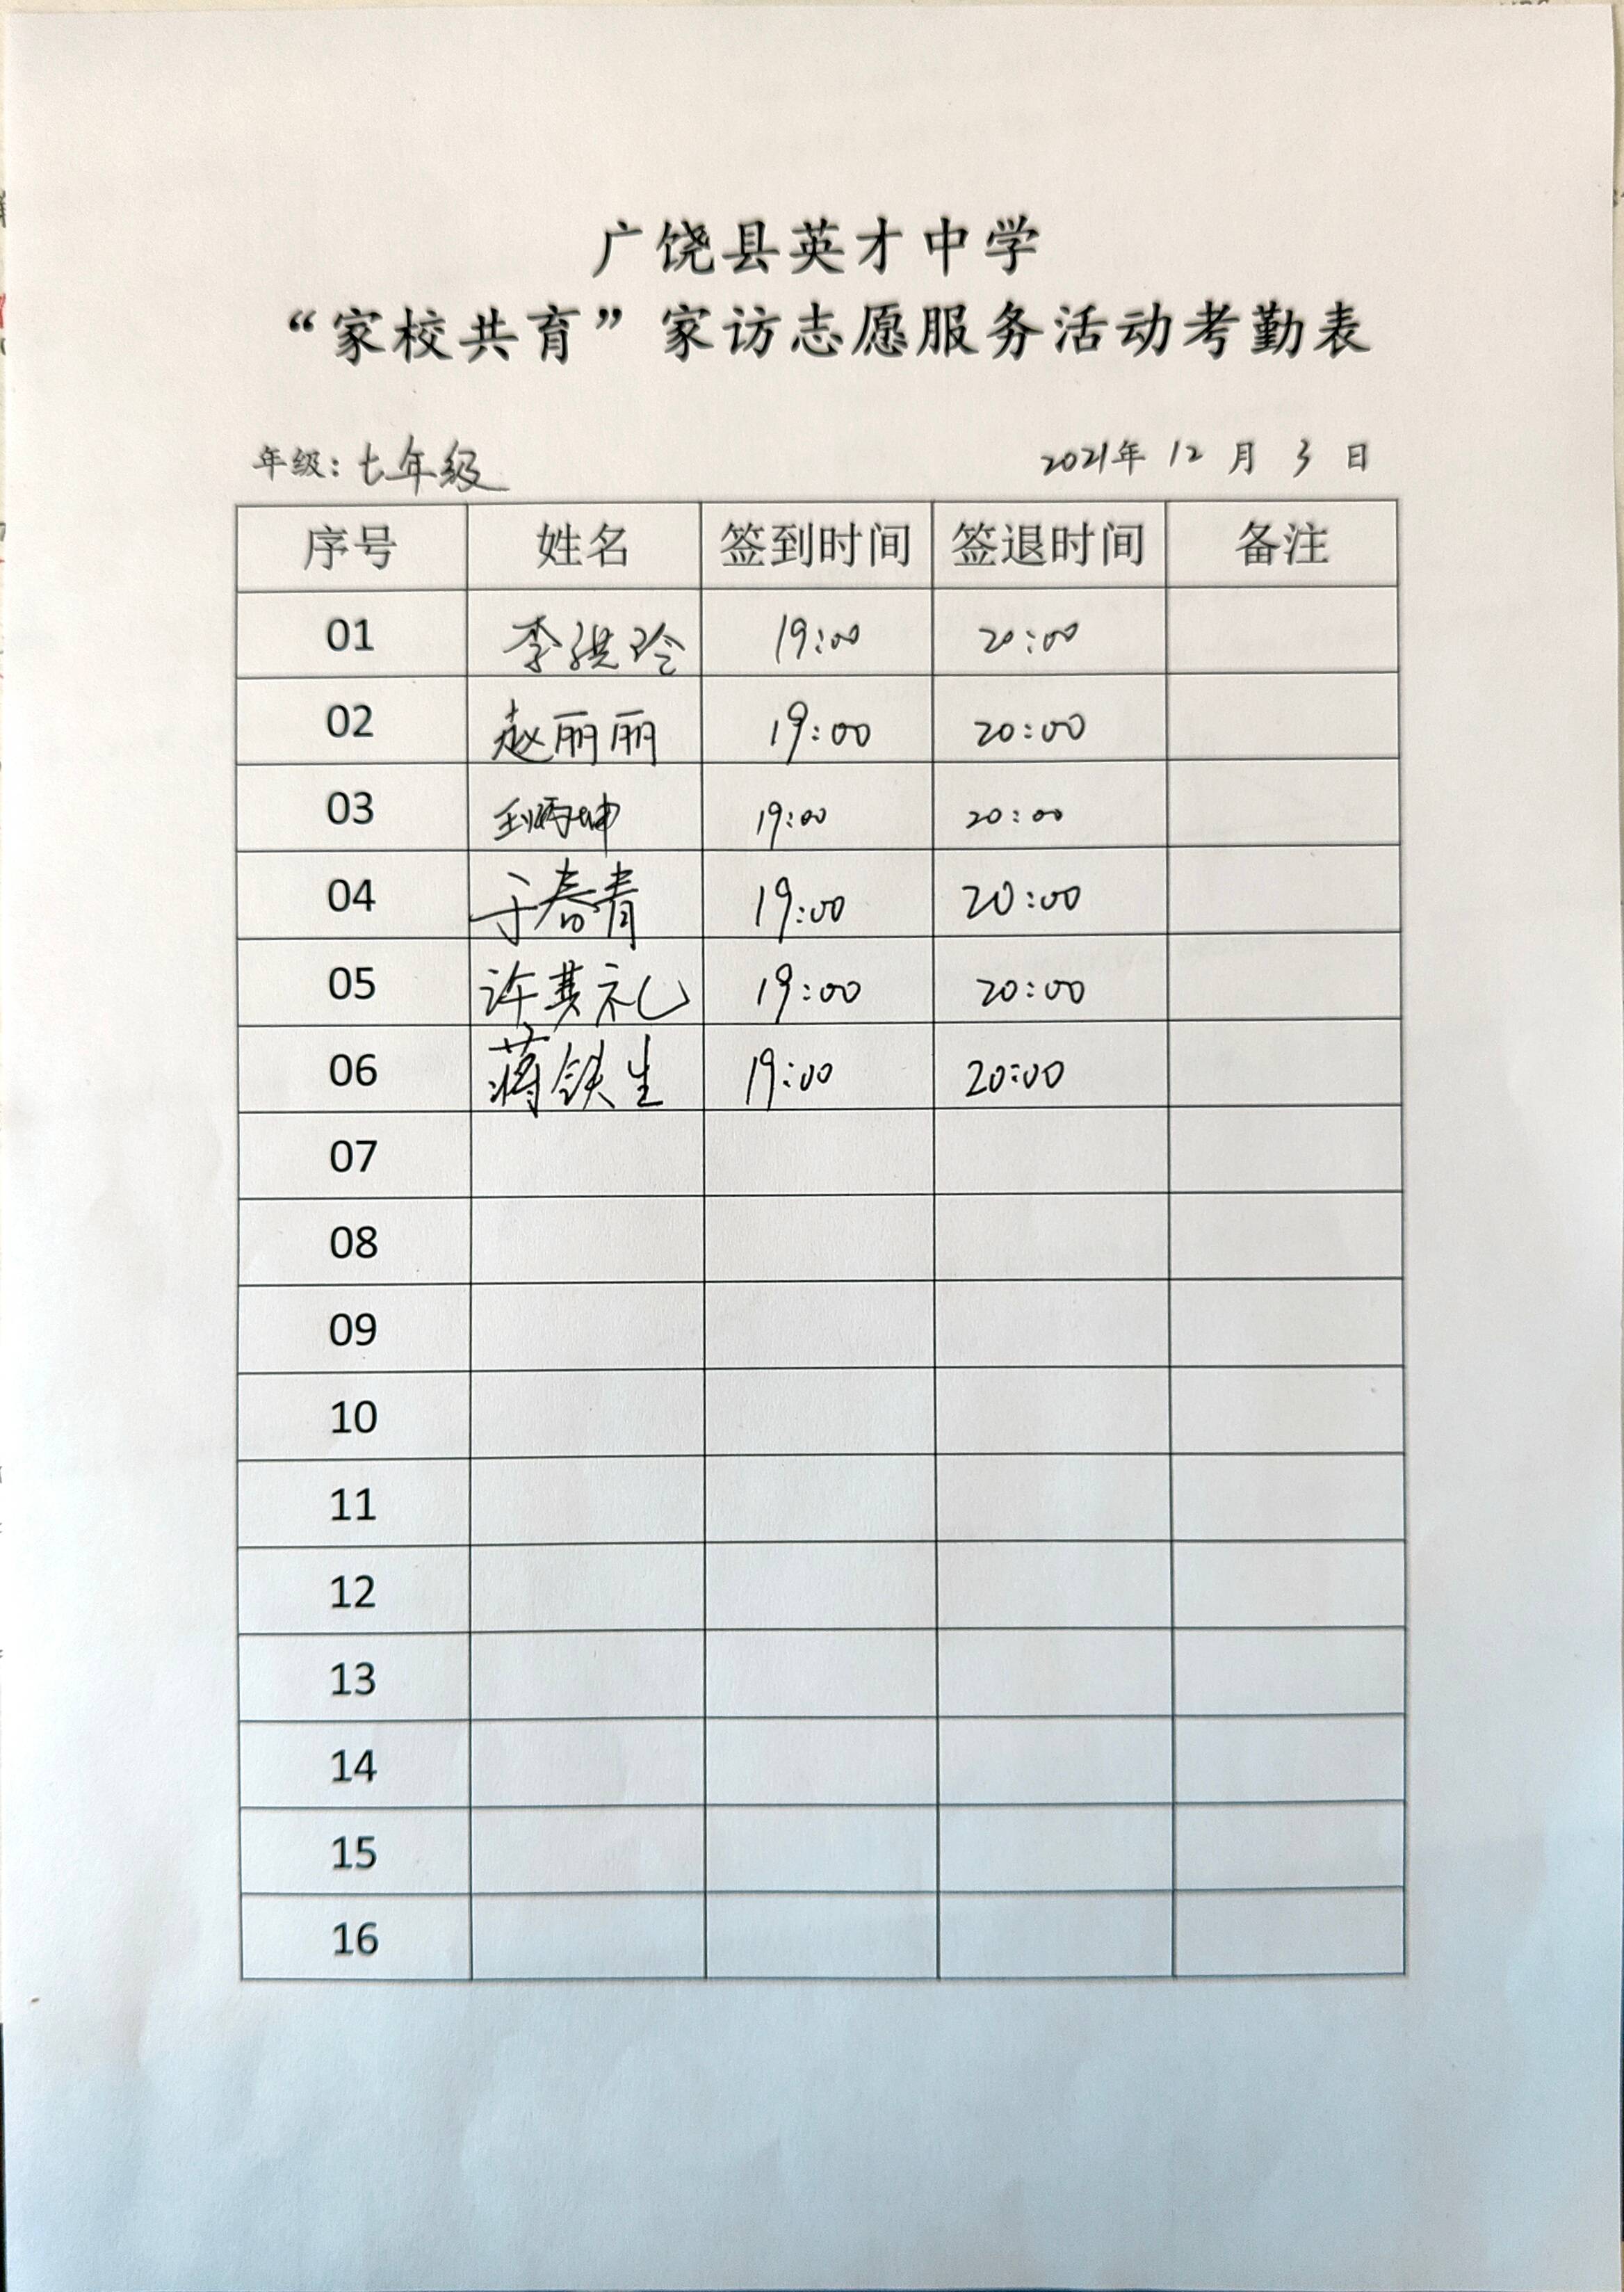 广饶县英才中学
“家校共育”家访志愿服务活动考勤表
年级：七年级 2021年 12 月 3 日
序号 姓名 签到时间 签退时间 备注
01 李洪玲 19:00 20:00
02 赵丽丽 19:00 20:00
03 19:00 20:00
04 于春青 19:00 20:00
05 许其礼 19:00 20:00
06 蒋铁生 19:00 20:00
07
08
09
10
11
12
13
14
15
16